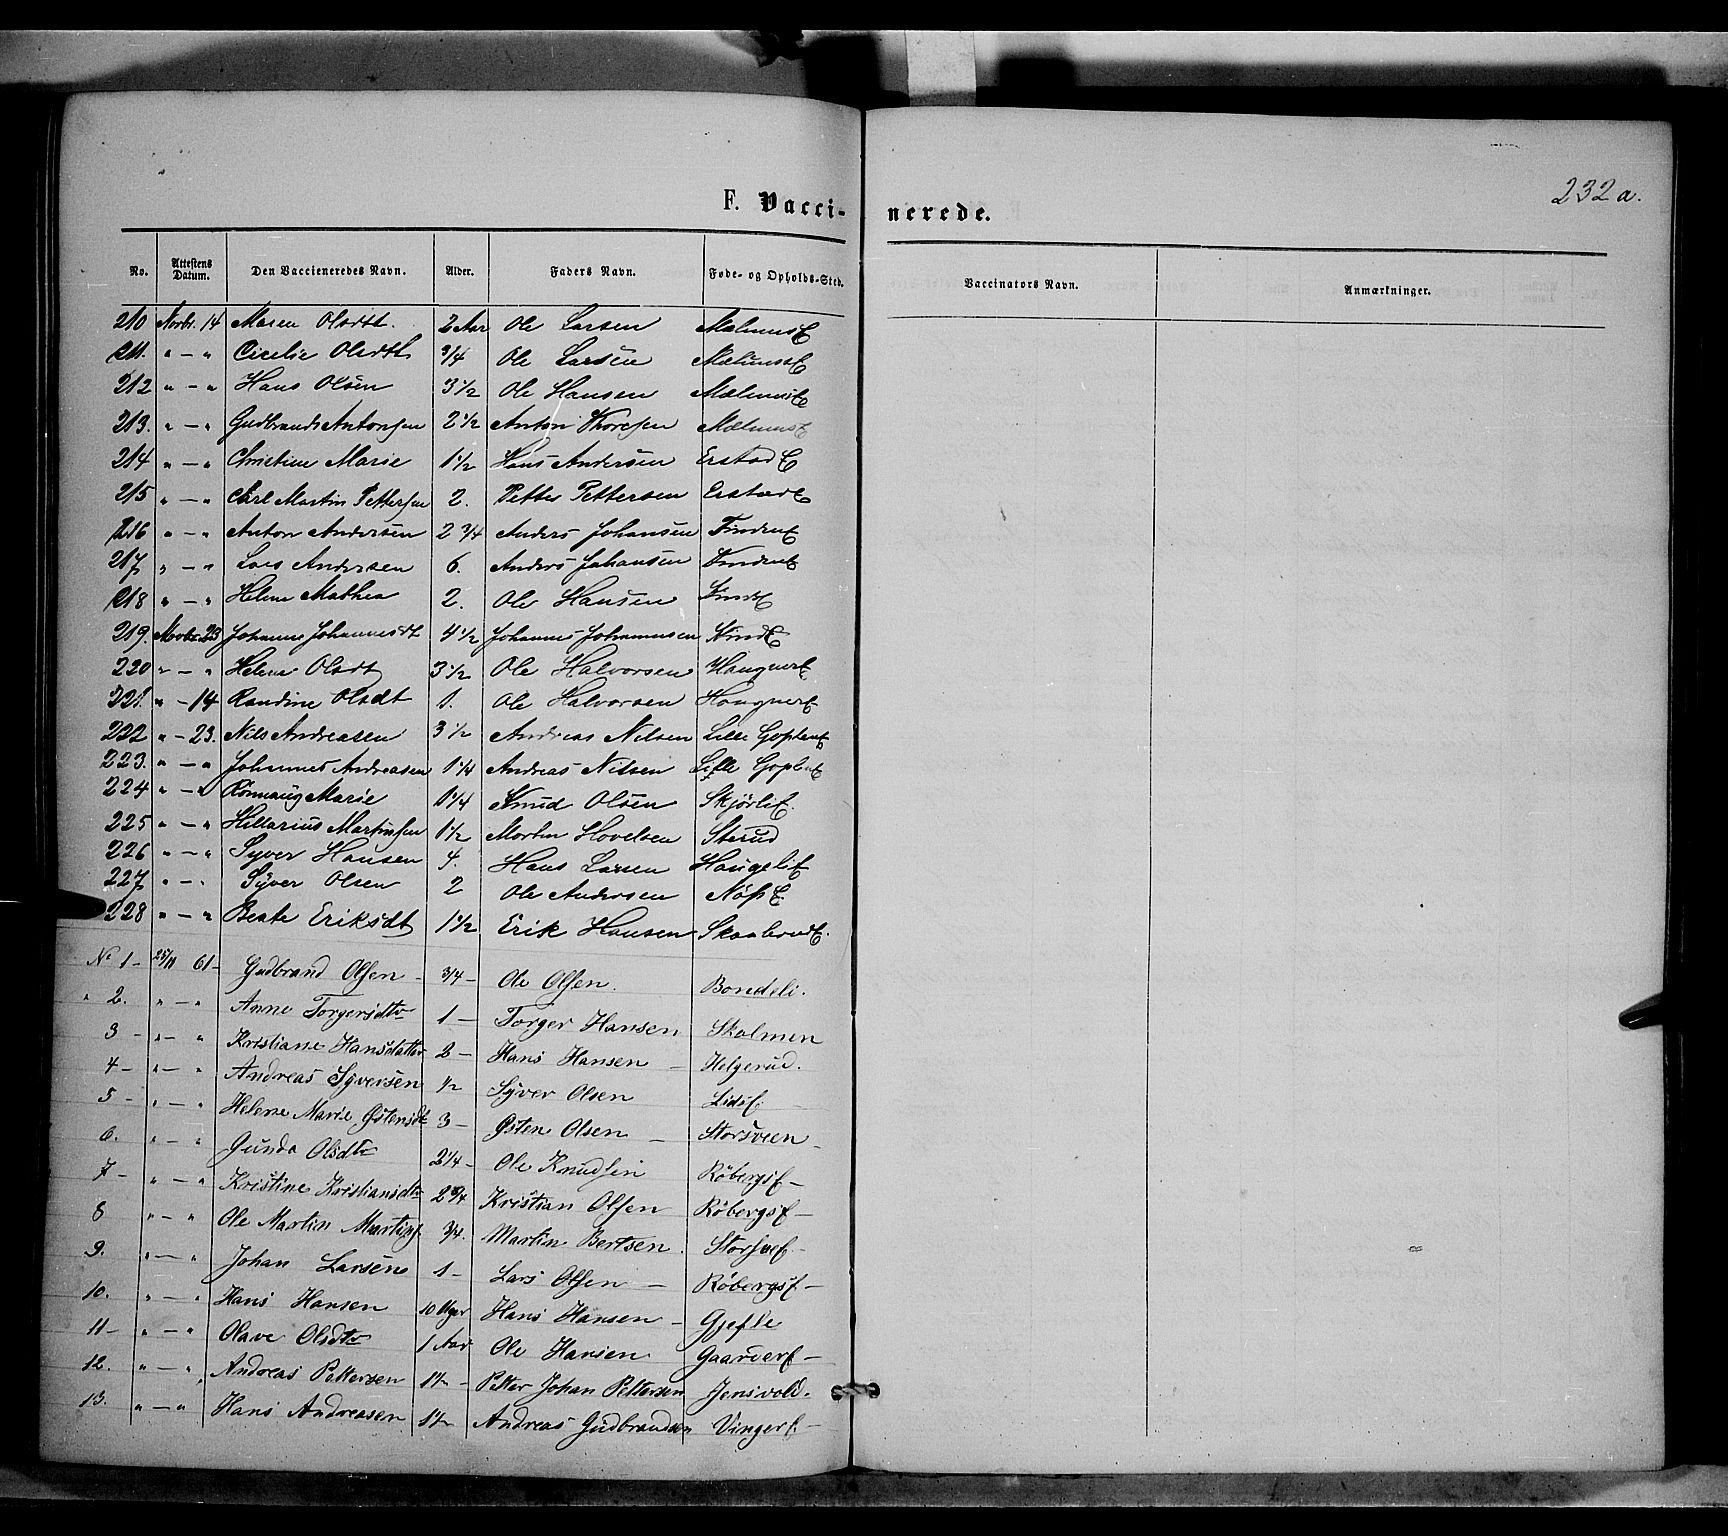 232a.
F. Vacci- nerede.
No. Attestens Datum. Den Vaccieneredes Navn. Alder. Faders Navn. Føde- og Opholds-Sted. Vaccinators Navn. Anmærkninger.
210 Novbr. 14 Maren Olsdtt. 2 Aar Ole Larsen
211. " - " Cicelie Olsdtt 3/4 Ole Larsen
212 " - " Hans Olsen 3 1/2 Ole Hansen
213. " - " Gudbrands Antonsen 2 1/2 Anton Thoresen
214 " - " Christine Marie 1 1/2 Hans Andersen Erstad E
215 " - " Carl Martin Pettersen 2. Petter Pettersen
216 " - " Anton Andersen 2 3/4 Anders Johansen
217 " - " Lars Andersen 6. Anders Johansen
218 " - " Helene Mathea 2. Ole Hansen
219. Novbr. 23 Johanne Johannesdt 4 1/2 Johannes Johannesen
220 " - " Helene Olsdt 3 1/2 Ole Halvorsen
221. " - 14 Randine Olsdt 1. Ole Halvorsen
222 " - 23. Nils Andreassen 3 1/2 Andreas Nilsen Lille
223. " - " Johannes Andreasen 1 1/4 Andreas Nilsen Lille
224 " - " Rønnaug Marie 1 1/4 Knud Olsen
225 " - " Hillarius Martinsen 1 1/2 Hovelsen Sterud
226 " - " Syver Hansen 4. Hans Larsen
227 " - " Syver Olsen 2 Ole Andersen
228 " - " Beate Eriksdt 1 1/2 Erik Hansen
No 1 - 25/11 61 - Gudbrand Olsen - 3/4 - Ole Olsen. Bondeli.
" 2. " - " Anne Torgersdtr 1 - Torger Hansen Skolmen
3 - " - " Kristiane Hansdatter 2 - Hans Hansen - Helgerud.
4 - " - " Andreas Syversen 1/2 Syver Olsen
5 - " - " Helene Marie Østensdt 3 - Østen Olsen - Storsveen -
6. " - " Gunda Olsdtr 2 1/4 - Ole Knudsen Röbergsf -
7 - " - " Kristine Kristiansdtr 2 3/4 Kristian Olsen Röbergsf -
8 " - " Ole Martin 3/4. Martin Bertsen.
9. " - " Johan Larsen 1 - Lars Olsen - Röbergsf -
10. " - " Hans Hansen 10 Uger Hans Hansen - Gjefle
11 - " - " Olave Olsdtr 1 Aar Ole Hansen
12. " - " Andreas Pettersen 1 1/2 - Petter Johan Pettersen Jensvold.
13. " - " Hans Andreasen 1 1/2 Andreas Gudbrandsen